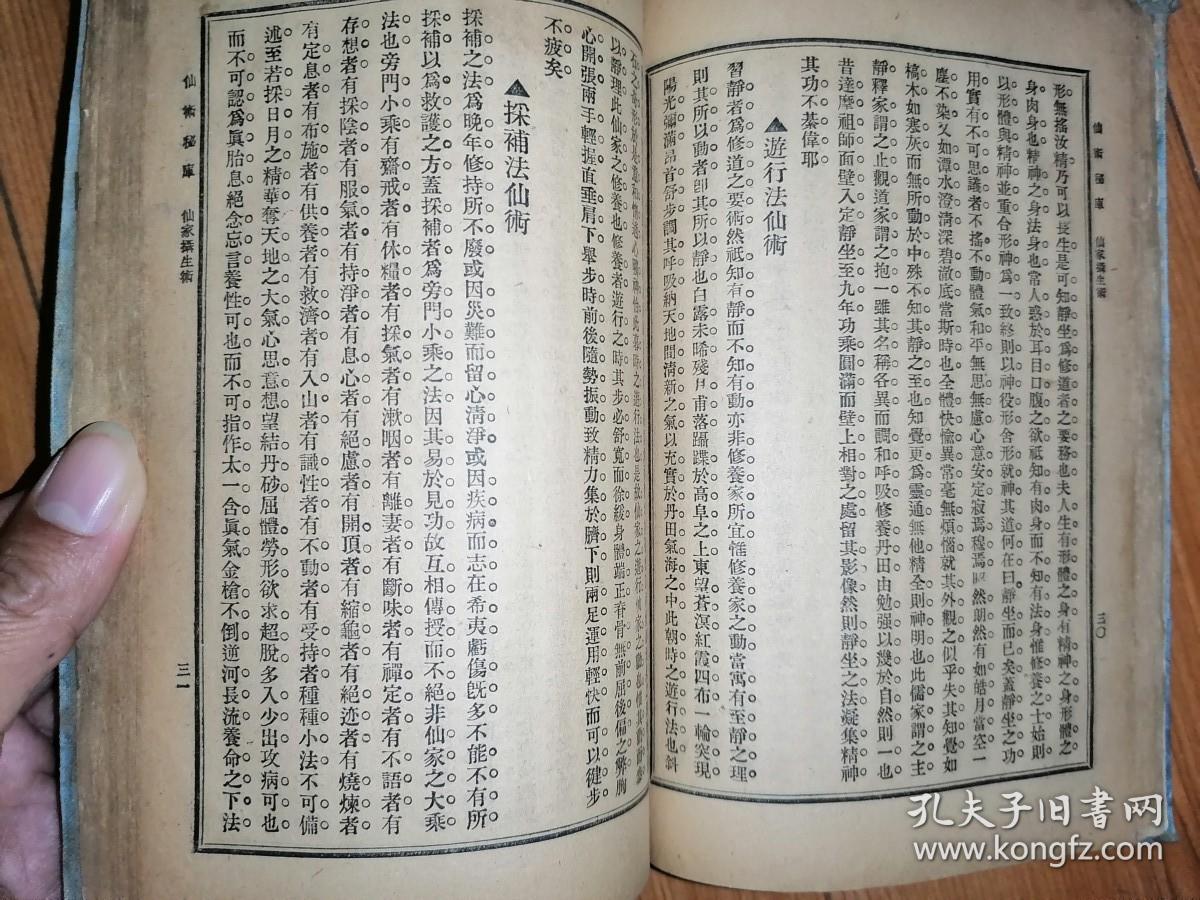 仙術秘庫　仙家攝生術
三〇
形無搖汝精乃可以長生是可知靜坐爲修道者之要務也夫人生有形體之身有精神之身形體之
身肉身也精神之身法身也常人惑於耳目口腹之欲祗知有肉身而不知有法身惟修養之士始則
以形體與精神並重合形神爲一致終則以神役形舍形就神其道何在曰靜坐而已矣蓋靜坐之功
用實有不可思議者不搖不動體氣和平無思無慮心意安定寂焉穆焉然朗然有如皓月當空一
塵不染又如潭水澄清深碧澈底當斯時也全體快愉異常毫無煩惱就其外觀之似乎失其知覺如
槁木如寒灰而無所動於中殊不知其靜之至也知覺更爲靈通無他精全則神明也此儒家謂之主
靜釋家謂之止觀道家謂之抱一雖其名稱各異而調和呼吸修養丹田由勉强以幾於自然則一也
昔達摩祖師面壁入定靜坐至九年功乘圓滿而壁上相對之處留其影像然則靜坐之法凝集精神
其功不綦偉耶
▲遊行法仙術
習靜者爲修道之要術然祗知有靜而不知有動亦非修養家所宜惟修養家之動當寓有至靜之理
則其所以動者卽其所以靜也白露未晞殘月甫落躡蹀於高阜之上東望蒼溟紅霞四布一輪突現
陽光彌滿昂首舒步調其呼吸納天地間清新之氣以充實於丹田氣海之中此朝時之遊行法也斜
以靜理此仙家之修養也修養者遊行之時其步必舒寬而徐緩身體端正脊骨無前屈後偏之弊胸
心開張兩手輕握直垂肩下舉步時前後隨勢振動致精力集於臍下則兩足運用輕快而可以健步
不疲矣
▲採補法仙術
採補之法爲晚年修持所不廢或因災難而留心清淨或因疾病而志在希夷虧傷旣多不能不有所
採補以爲救護之方蓋採補者爲旁門小乘之法因其易於見功故互相傳授而不絕非仙家之大乘
法也旁門小乘有齋戒者有休糧者有採氣者有漱咽者有離妻者有斷味者有禪定者有不語者有
存想者有採陰者有服氣者有持淨者有息心者有絕慮者有開頂者有縮龜者有絕迹者有燒煉者
有定息者有布施者有供養者有救濟者有入山者有識性者有不動者有受持者種種小法不可備
述至若採日月之精華奪天地之大氣心思意想望結丹砂屈體勞形欲求超脫多入少出攻病可也
而不可認爲眞胎息絕念忘言養性可也而不可指作太一含眞氣金槍不倒道河長流養命之下法
仙術秘庫　仙家攝生術
三一
孔夫子旧书网
www.kongfz.com